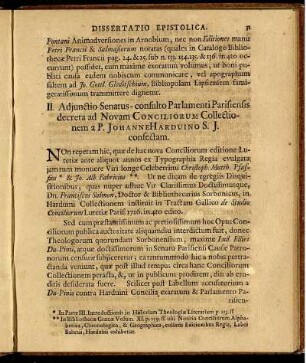 DISSERTATIO EPISTOLICA. 31
Pontani Animadversiones in Arnobium, nec non Editiones manu
Petri Francii & Salmasiorum notatas (quales in Catalogo Biblio-
thecæ Petri Francii pag. 24. & 25. sub n. 133. 134. 135. & 136. in 4to oc-
currunt) possidet, eum maxime exoratum volumus, ut boni pu-
blici causa eadem nobiscum communicare, vel apographum
saltem ad Jo. Gottl. Gleditschium, bibliopolam Lipsiensem fama-
geratissimum transmittere dignetur.
II. Adjunctio Senatus-consulto Parlamenti Parisiensis
decreta ad Novam CONCILIORUM Collectio-
nem a P. JOHANNE HARDUINO S. J.
confectam.
NOn repetam hic, quæ de hac nova Conciliorum editione Lu-
tetiæ ante aliquot annos ex Typographia Regia evulgata
jamtum monuere Vari longe Celeberrimi Christoph. Matth. Pfaf-
fius * & Jo. Alb. Fabricius **. Ut ne dicam de egregiis Disqui-
sitionibus, quas nuper adfuit Vir Clarissimus Doctissimusque,
Dn. Franciscus Salmon, Doctor & Bibliothecarius Sorbonicus, in
Harduini Collectionem instituit in Tractatu Gallico de studio
Conciliorum Lutetiæ Paris. 1726. in 4to edito.
Sed cum præstantissimum ac pretiosissimum hoc Opus Conci-
liorum publica auctoritate aliquamdiu interdictum fuit, donec
Theologorum quorundam Sorbonensium, maxime Lud. Ellies
Du-Pinii, atque doctissimorum in Senatu Parisiensi Causæ Patro-
norum censuræ subjiceretur; commemorandum hic a nobis pe-
tractanda veniunt, quæ post illud tempus circa hanc Conciliorum
Collectionem peracta, &, ut in publicum prodiret, diu ab erudi-
tis desiderata fuere. Scilicet post Libellum accusatorium a
Du-Pinio contra Harduini Concilia exaratum & Parlamento Pa-
risien-
* In Parte III. Introductionis in Historiam Theologiæ Literariam p. 113. ſſ
** In Bibliothecæ Græcæ Volum. XI. p. 119. ſſ ubi Notitia Conciliorum Alpha-
betica, Chronologica, & Geographica, exstans Editionibus Regia, Labei
Baluzii, Harduini exhibetur.